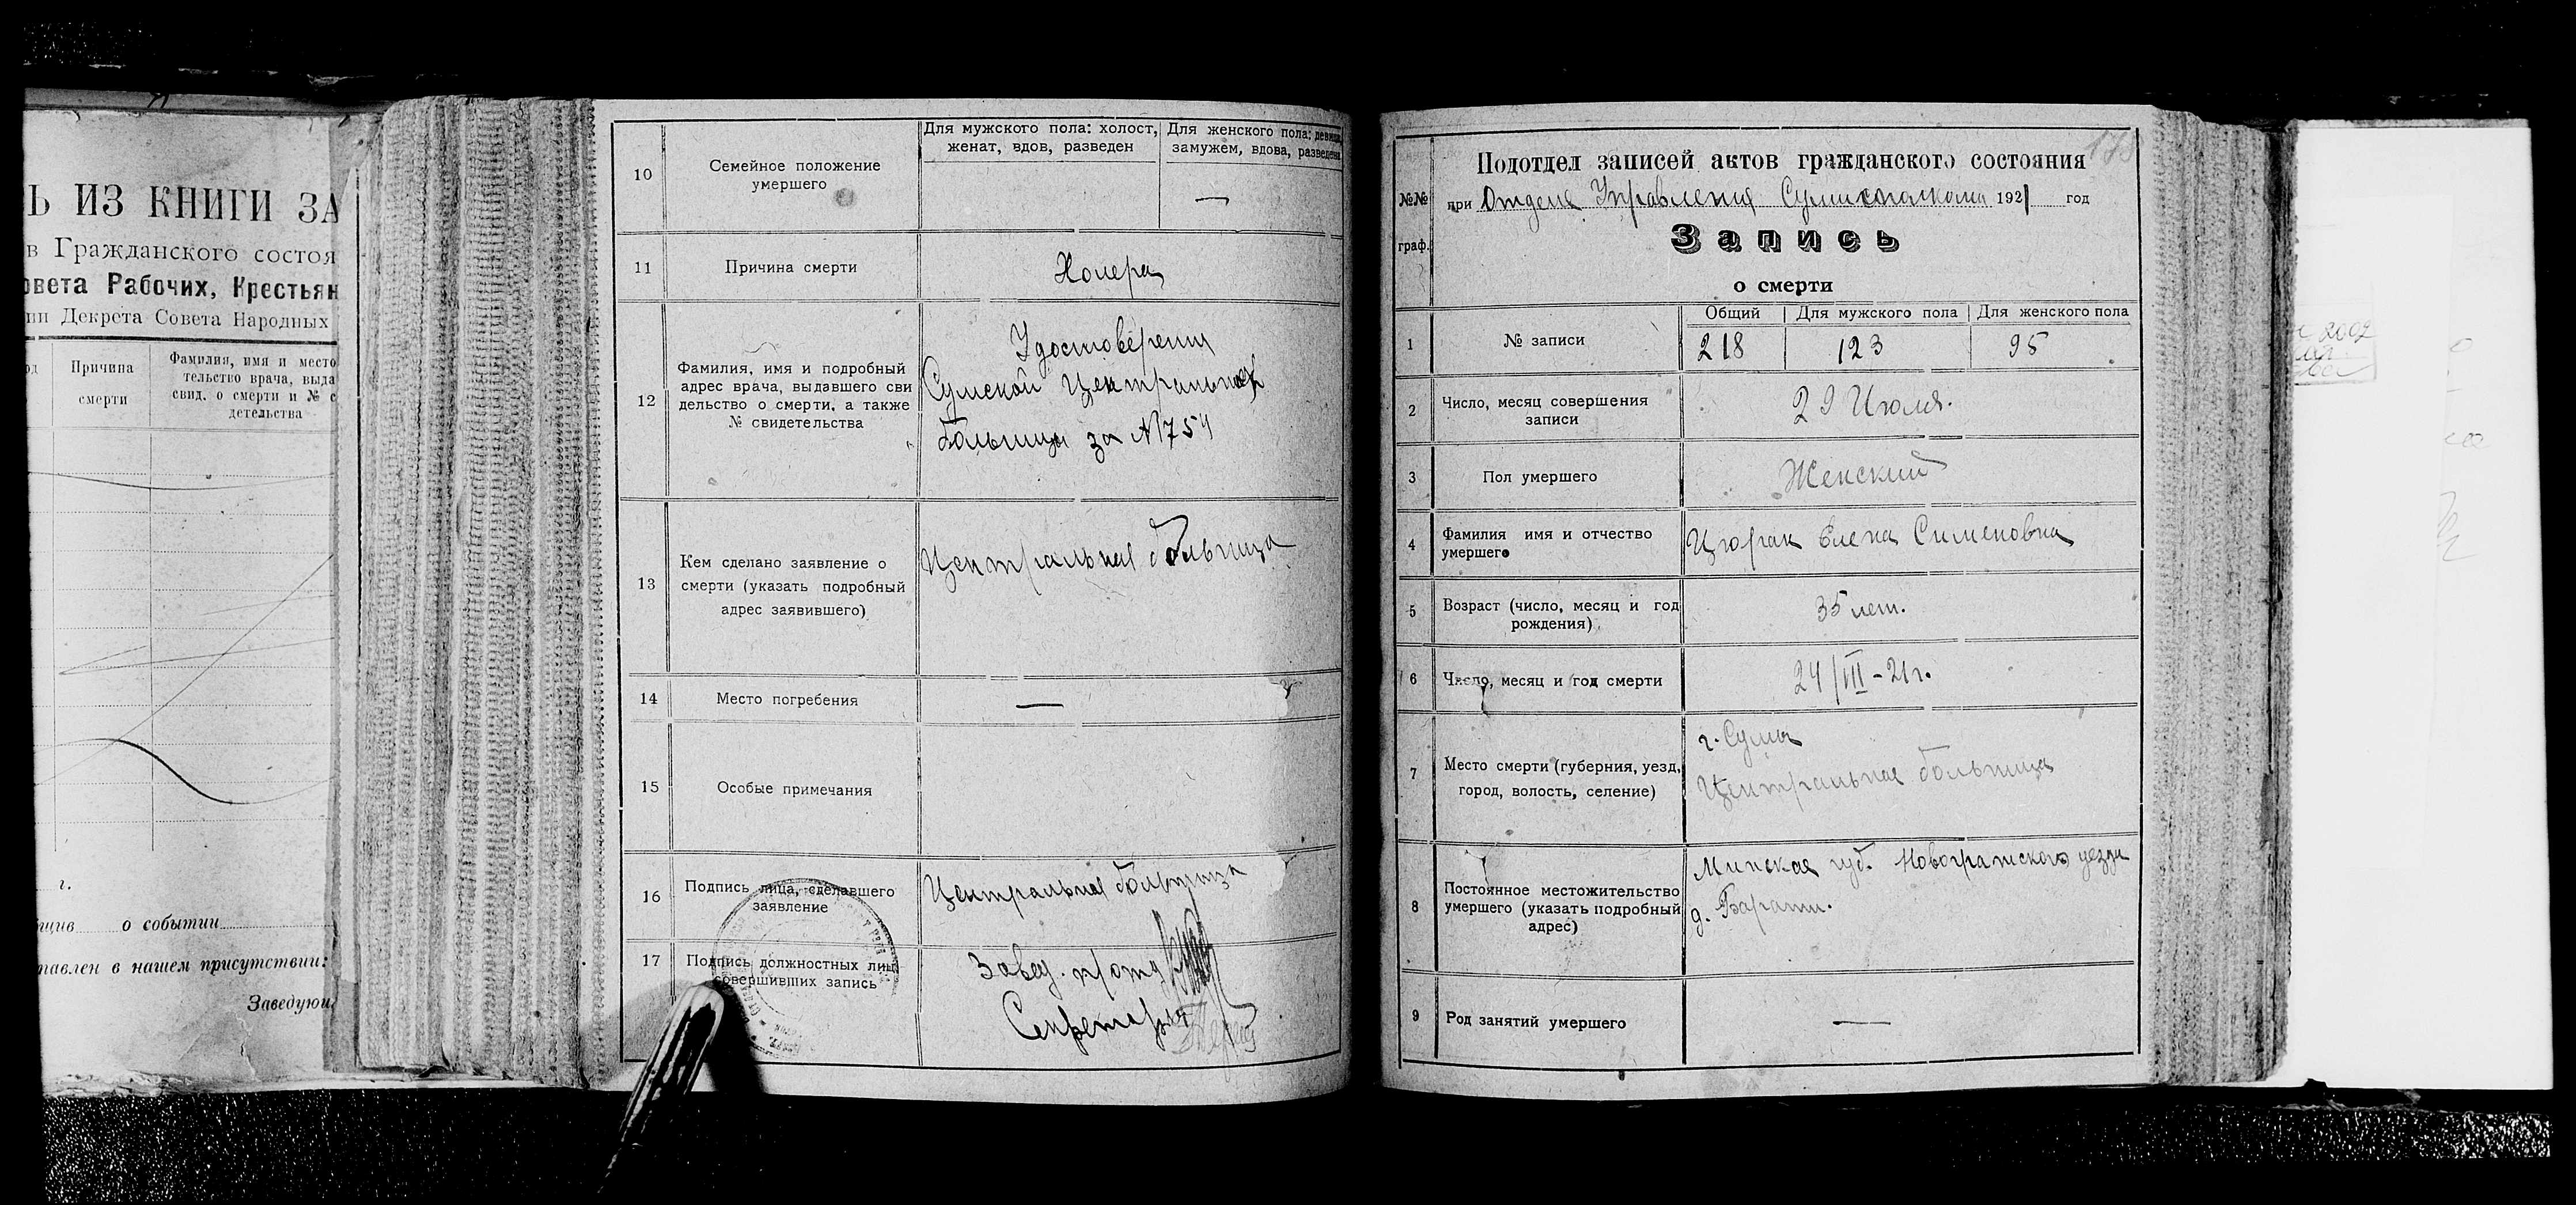 Ь ИЗ КНИГИ ЗА
в Гражданского состоя
овета Рабочих, Крестьян
ии Декрета Совета Народных
Причина
смерти
Фамилия, имя и место
тельство врача, выда
свид. о смерти и № с
детельства
г.
о событии
тавлен в нашем присутствии:
Заведующ
10
Семейное положение
умершего
Для мужского пола: холост,
женат, вдов, разведен
Для женского пола: девица,
замужем, вдова, разведена
—
11
Причина смерти
Холера
12
Фамилия, имя и подробный
адрес врача, выдавшего сви
дельство о смерти, а также
№ свидетельства
Удостоверения
Сумской Центральной
больницы за №754
13
Кем сделано заявление о
смерти (указать подробный
адрес заявившего)
Центральная больница
14
Место погребения
—
15
Особые примечания
16
Подпись лица, сделавшего
заявление
Центральная больница
17
Подпись должностных лиц
совершивших запись
Завед. п/отд
Секретарь
№№
граф.
Подотдел записей актов гражданского состояния
при Отделе Управления Сумисполкома 1921 год
Запись
о смерти
1
№ записи
Общий
Для мужского пола
Для женского пола
218
123
95
2
Число, месяц совершения
записи
29 Июля.
3
Пол умершего
Женский
4
Фамилия имя и отчество
умершего
Цюрак Елена Сименовна
5
Возраст (число, месяц и год
рождения)
35 лет.
6
Число, месяц и год смерти
24/III-21г.
7
Место смерти (губерния, уезд,
город, волость, селение)
г. Сумы
Центральная больница
8
Постоянное местожительство
умершего (указать подробный
адрес)
Минская губ. Новогрутского уезда
д.
9
Род занятий умершего
—